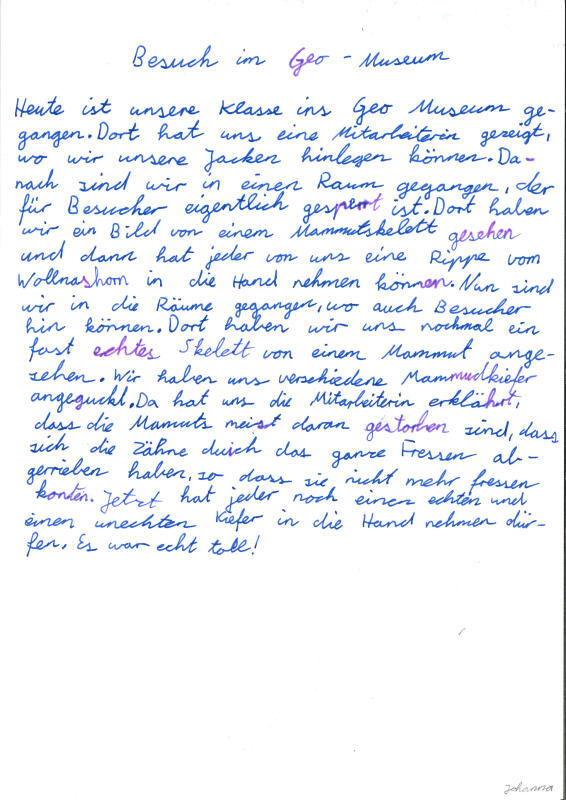 Besuch im Geo - Museum
Heute ist unsere Klasse ins Geo Museum ge-
gangen. Dort hat uns eine Mitarbeiterin gezeigt,
wo wir unsere Jacken hinlegen können. Da-
nach sind wir in einen Raum gegangen, der
für Besucher eigentlich gesperrt ist. Dort haben
wir ein Bild von einem Mammutskelett gesehen
und dann hat jeder von uns eine Rippe vom
Wollnashorn in die Hand nehmen können. Nun sind
wir in die Räume gegangen, wo auch Besucher
hin können. Dort haben wir uns nochmal ein
fast echtes Skelett von einem Mammut ange-
sehen. Wir haben uns verschiedene Mammudkiefer
angeguckt. Da hat uns die Mitarbeiterin erklährt,
dass die Mamuts meist daran gestorben sind, dass
sich die Zähne durch das ganze Fressen ab-
gerrieben haben, so dass sie nicht mehr fressen
konten. Jetzt hat jeder noch einen echten und
einen unechten Kiefer in die Hand nehmen dür-
fen. Es war echt toll!
Johanna